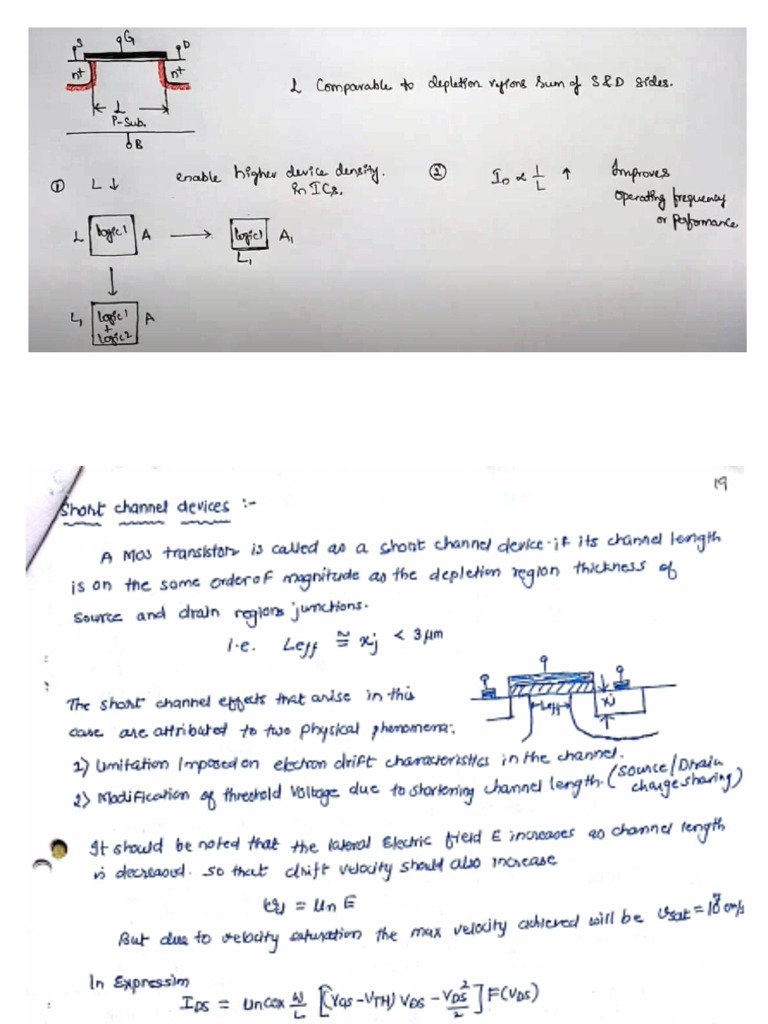 S G D
n+ n+
L
P-Sub.
B
L Comparable to depletion regions sum of S&D sides.
① L↓ enable higher device density. in ICs.
② I_D ∝ 1/L ↑ Improves
operating frequency
or performance
L Logic1 A → Logic1 A₁
L₁
L₁ Logic1 + Logic2 A
19
Short channel devices :-
A Mos transistor is called as a short channel device if its channel length
is on the same order of magnitude as the depletion region thickness of
source and drain regions junctions.
i.e. Leff ≅ xj < 3 μm
The short channel effects that arise in this
case are attributed to two physical phenomena:
Leff xj
1) Limitation Imposed on electron drift characteristics in the channel.
2) Modification of threshold voltage due to shortening channel length. (source/Drain
charge sharing)
It should be noted that the lateral Electric field E increases as channel length
is decreased. so that drift velocity should also increase
= Un E
But due to velocity saturation the max velocity achieved will be Vsat = 10⁷ cm/s
In Expressim
I_DS = Un Cox W/L [(VGS - VTH) VDS - VDS²/2] F(VDS)